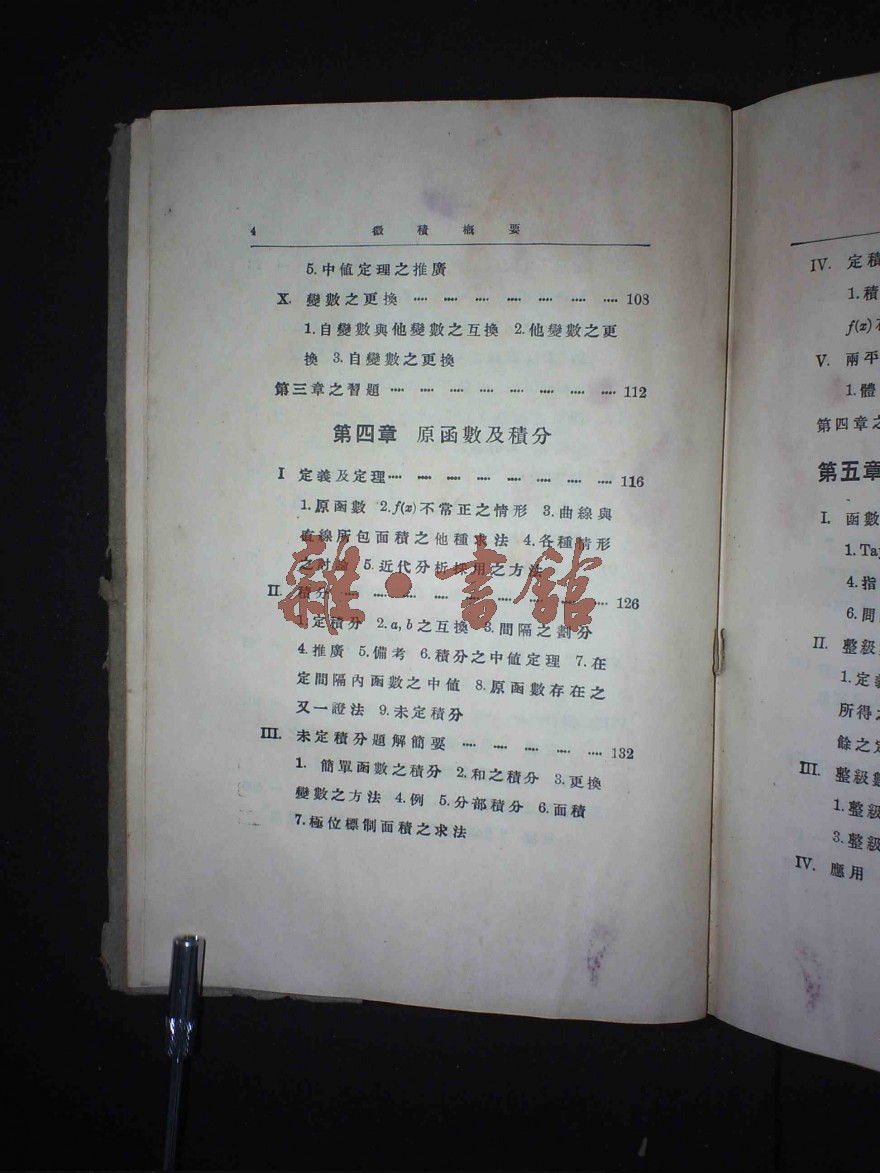 4 微積概要
5.中値定理之推廣
X. 變數之更換 …… 108
1.自變數與他變數之互換 2.他變數之更
換 3.自變數之更換
第三章之習題 …… 112
第四章 原函數及積分
I 定義及定理 …… 116
1.原函數 2.f(x)不常正之情形 3.曲線與
直線所包面積之他種求法 4.各種情形
之討論 5.近代分析採用之方法
II. 積分 …… 126
1.定積分 2.a,b之互換 3.間隔之劃分
4.推廣 5.備考 6.積分之中値定理 7.在
定間隔內函數之中値 8.原函數存在之
又一證法 9.未定積分
III. 未定積分題解簡要 …… 132
1. 簡單函數之積分 2.和之積分 3.更換
變數之方法 4.例 5.分部積分 6.面積
7.極位標制面積之求法
雜·書館
IV. 定積
1.積
f(x)
V. 兩平
1.體
第四章之
第五章
I. 函數
1.Ta
4.指
6.問
II. 整級
1.定義
所得之
餘之定
III. 整級數
1.整級
3.整級
IV. 應用